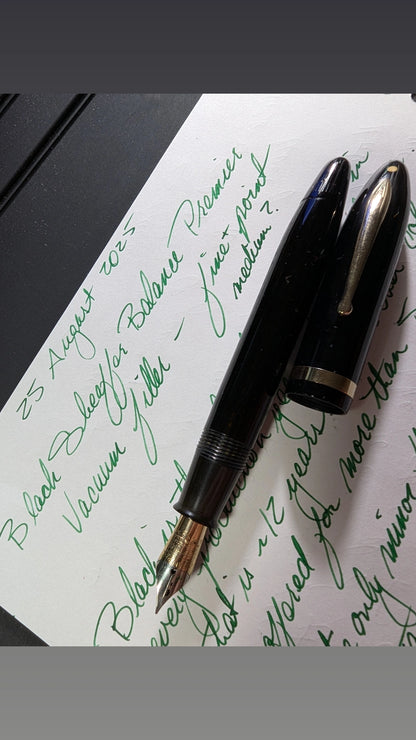 25 August 2025
Black Sheaffer Balance Premier
Vacuum filler — fine+ point
medium?
Black is th
every production
that is ~12 years
offered for more than 5
only minor